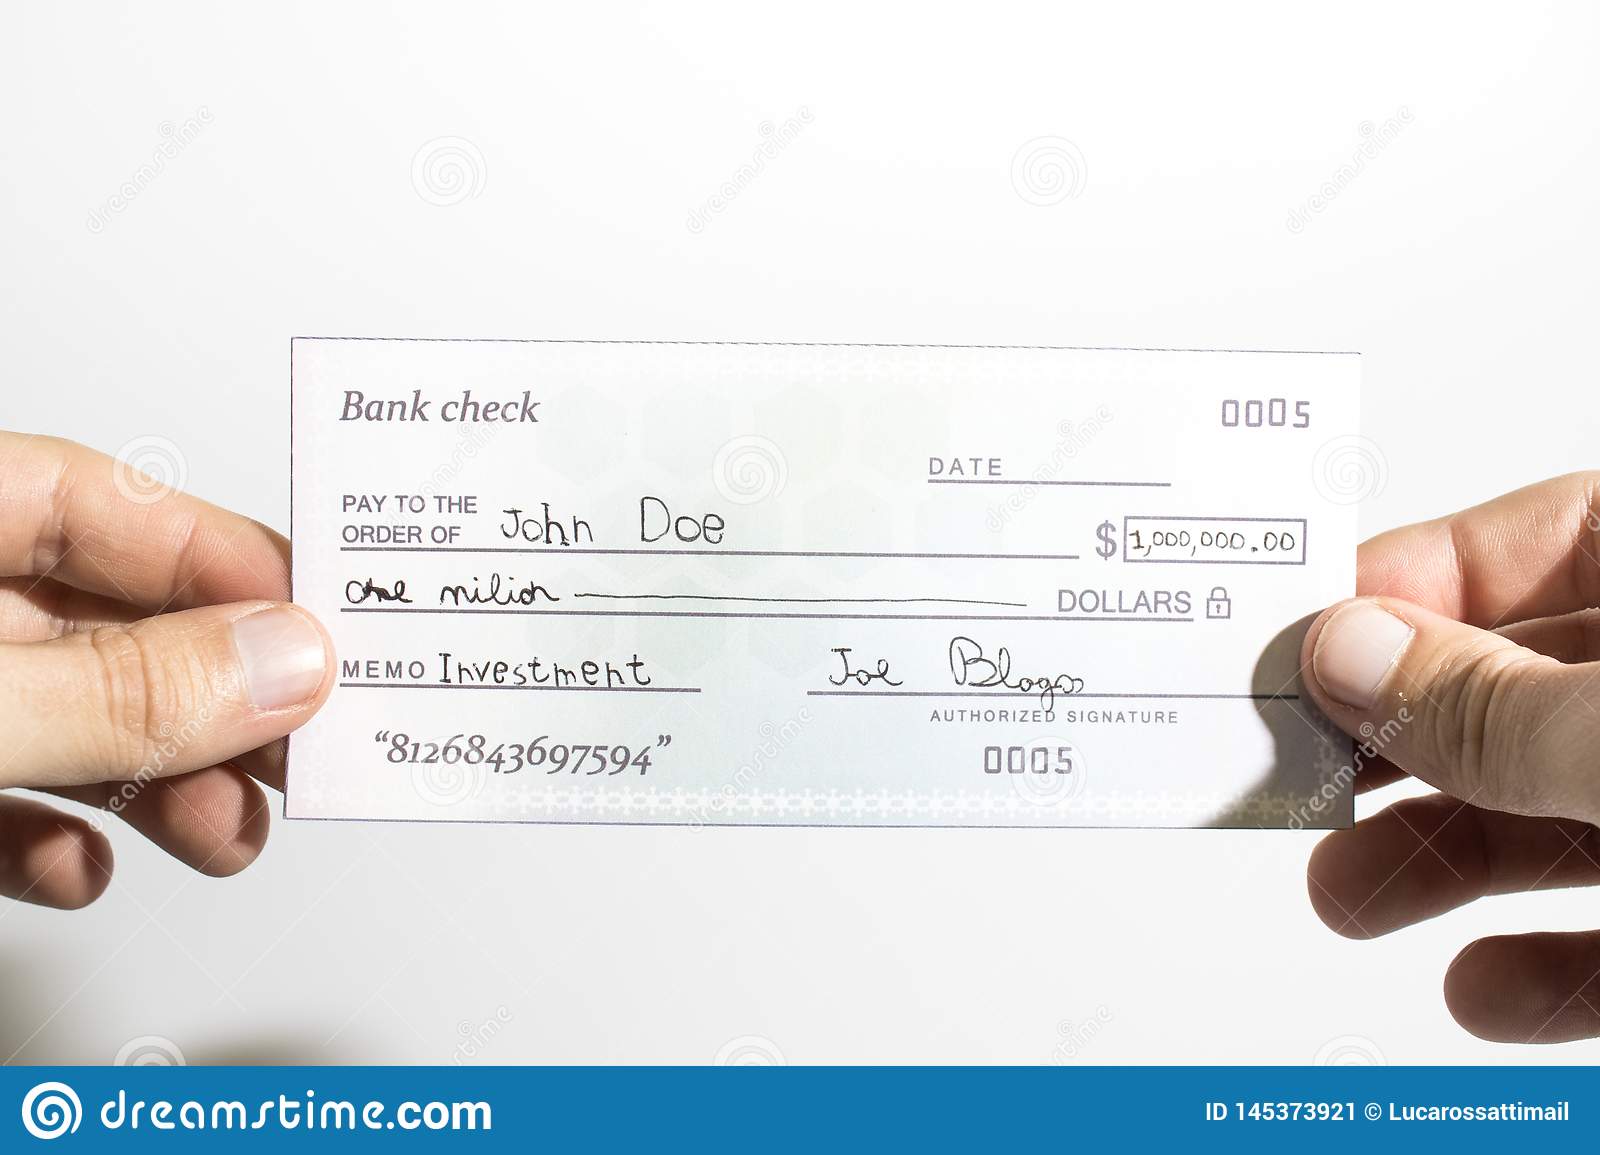 Bank check
0005
DATE
PAY TO THE
ORDER OF John Doe
$ 1,000,000.00
one milion DOLLARS
MEMO Investment
Joe Blogs
AUTHORIZED SIGNATURE
“8126843697594”
0005
dreamstime.com
ID 145373921 © Lucarossattimail